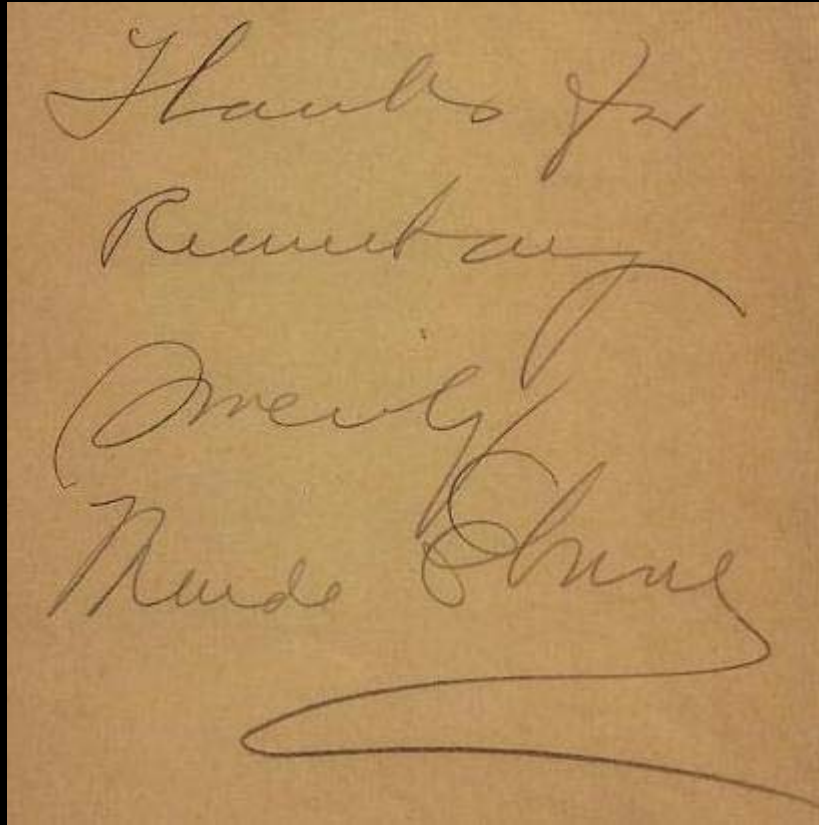 Thanks for
Remembering
Sincerely
Maude Eburne